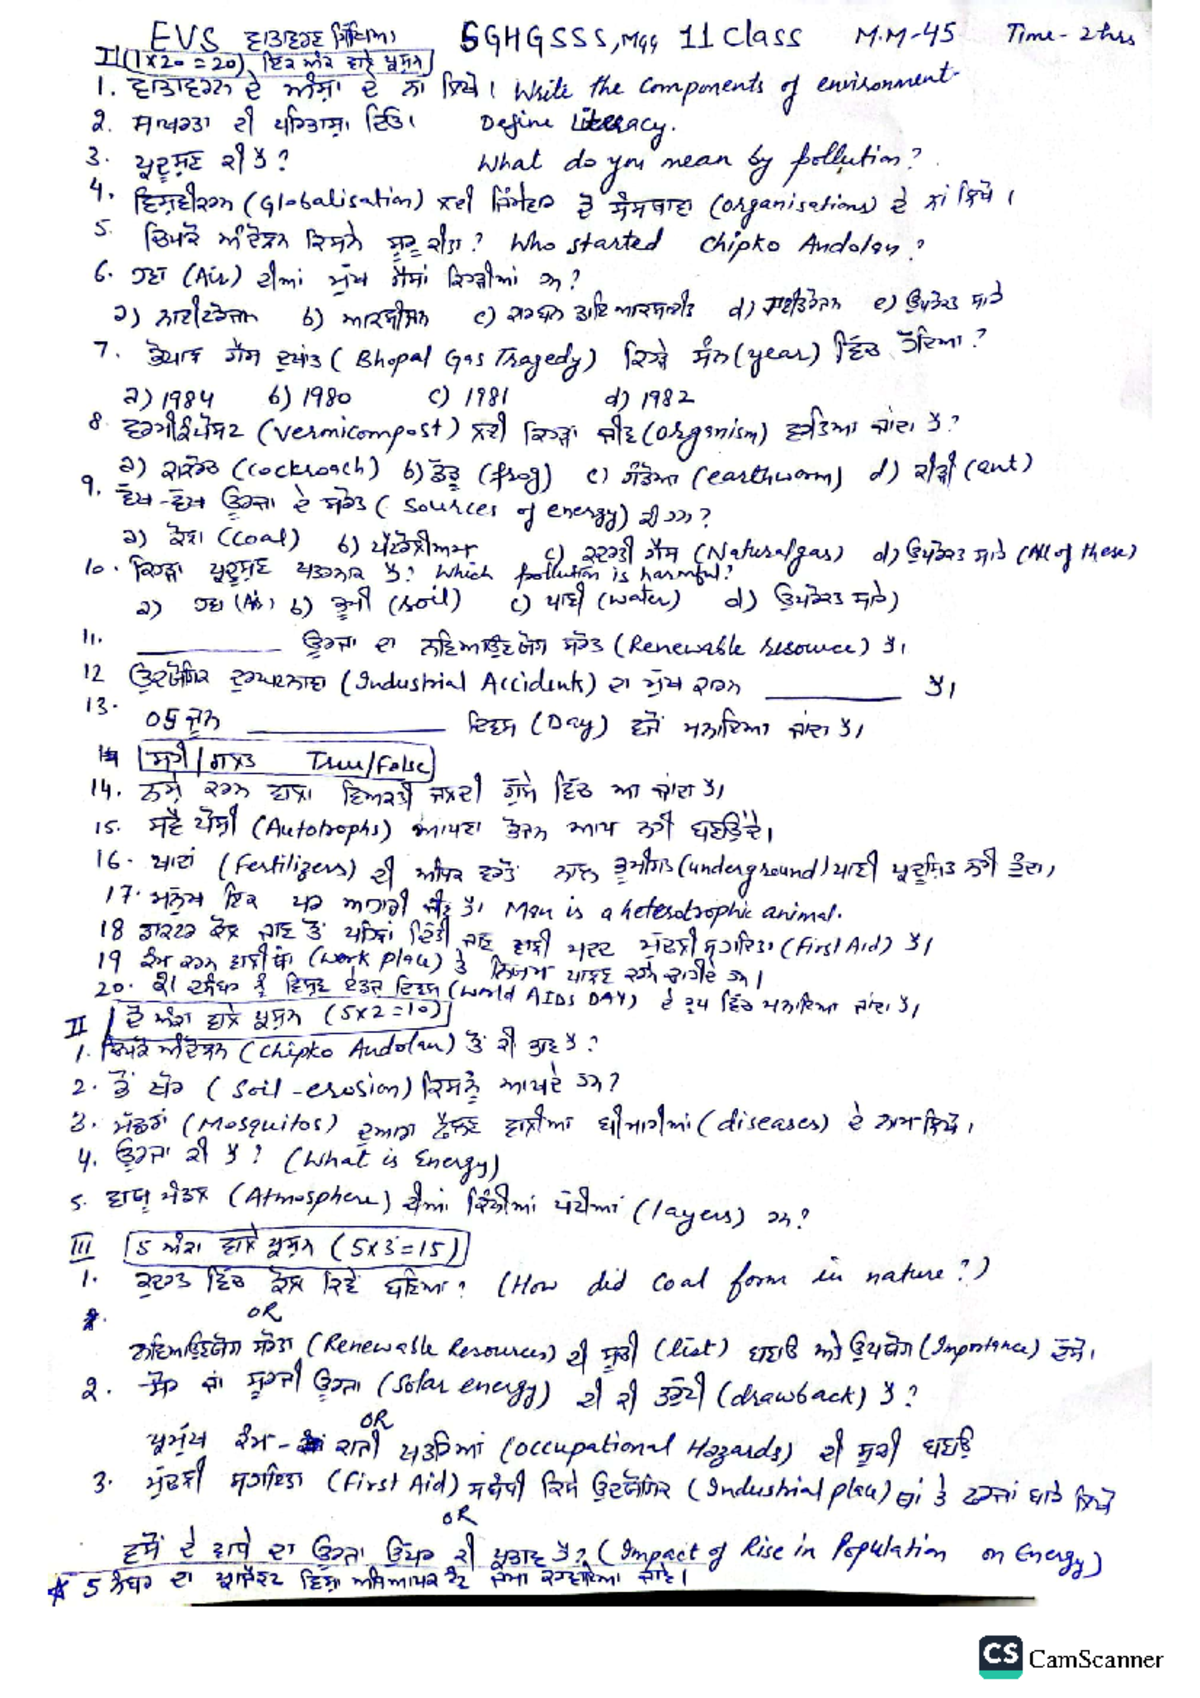 EVS ਵਾਤਾਵਰਣ ਸਿੱਖਿਆ SGHGSSS, MGG 11 Class M.M-45 Time - 2 hrs
I (1X20=20) ਇਕ ਅੰਕ ਵਾਲੇ ਪ੍ਰਸ਼ਨ
1. ਵਾਤਾਵਰਨ ਦੇ ਅੰਸ਼ਾਂ ਦੇ ਨਾਂ ਲਿਖੋ। Write the components of environment
2. ਸਾਖਰਤਾ ਦੀ ਪਰਿਭਾਸ਼ਾ ਦਿਓ। Define Literacy.
3. ਪ੍ਰਦੂਸ਼ਣ ਕੀ ਹੈ? What do you mean by pollution?
4. ਵਿਸ਼ਵੀਕਰਨ (Globalisation) ਲਈ ਜਿੰਮੇਵਾਰ ਦੋ ਸੰਸਥਾਵਾਂ (organisations) ਦੇ ਨਾਂ ਲਿਖੋ।
5. ਚਿਪਕੋ ਅੰਦੋਲਨ ਕਿਸਨੇ ਸ਼ੁਰੂ ਕੀਤਾ? Who started Chipko Andolan?
6. ਹਵਾ (Air) ਦੀਆਂ ਮੁੱਖ ਗੈਸਾਂ ਕਿਹੜੀਆਂ ਹਨ?
a) ਨਾਈਟਰੋਜਨ b) ਆਕਸੀਜਨ c) ਕਾਰਬਨ ਡਾਇਆਕਸਾਈਡ d) ਹਾਈਡਰੋਜਨ e) ਉਪਰੋਕਤ ਸਾਰੇ
7. ਭੋਪਾਲ ਗੈਸ ਦੁਖਾਂਤ (Bhopal Gas Tragedy) ਕਿਹੜੇ ਸੰਨ (year) ਵਿੱਚ ਹੋਇਆ?
a) 1984 b) 1980 c) 1981 d) 1982
8. ਵਰਮੀਕੰਪੋਸਟ (vermicompost) ਲਈ ਕਿਹੜਾ ਜੀਵ (organism) ਵਰਤਿਆ ਜਾਂਦਾ ਹੈ?
a) ਕਾਕਰੋਚ (cockroach) b) ਡੱਡੂ (frog) c) ਗੰਡੋਆ (earthworm) d) ਕੀੜੀ (ant)
9. ਵੱਖ-ਵੱਖ ਊਰਜਾ ਦੇ ਸਰੋਤ (sources of energy) ਕੀ ਹਨ?
a) ਕੋਲਾ (coal) b) ਪੈਟਰੋਲੀਅਮ c) ਕੁਦਰਤੀ ਗੈਸ (Natural gas) d) ਉਪਰੋਕਤ ਸਾਰੇ (All of these)
10. ਕਿਹੜਾ ਪ੍ਰਦੂਸ਼ਣ ਖਤਰਨਾਕ ਹੈ? Which pollution is harmful?
a) ਹਵਾ (Air) b) ਭੂਮੀ (soil) c) ਪਾਣੀ (water) d) ਉਪਰੋਕਤ ਸਾਰੇ)
11. ________ ਊਰਜਾ ਦਾ ਨਵਿਆਉਣਯੋਗ ਸਰੋਤ (Renewable resource) ਹੈ।
12 ਉਦਯੋਗਿਕ ਦੁਰਘਟਨਾਵਾਂ (Industrial Accidents) ਦਾ ਮੁੱਖ ਕਾਰਨ ________ ਹੈ।
13. 05 ਜੂਨ ________ ਦਿਵਸ (Day) ਵਜੋਂ ਮਨਾਇਆ ਜਾਂਦਾ ਹੈ।
ਸਹੀ/ਗਲਤ True/False
14. ਨਸ਼ੇ ਕਰਨ ਵਾਲਾ ਵਿਅਕਤੀ ਜਲਦੀ ਗੁੱਸੇ ਵਿੱਚ ਆ ਜਾਂਦਾ ਹੈ।
15. ਸਵੈ ਪੋਸ਼ੀ (Autotrophs) ਆਪਣਾ ਭੋਜਨ ਆਪ ਨਹੀਂ ਬਣਾਉਂਦੇ।
16. ਖਾਦਾਂ (fertilizers) ਦੀ ਅਧਿਕ ਵਰਤੋਂ ਨਾਲ ਭੂਮੀਗਤ (underground) ਪਾਣੀ ਪ੍ਰਦੂਸ਼ਿਤ ਨਹੀਂ ਹੁੰਦਾ।
17. ਮਨੁੱਖ ਇਕ ਪਰ ਆਹਾਰੀ ਜੀਵ ਹੈ। Man is a heterotrophic animal.
18 ਡਾਕਟਰ ਕੋਲ ਜਾਣ ਤੋਂ ਪਹਿਲਾਂ ਦਿੱਤੀ ਜਾਣ ਵਾਲੀ ਮਦਦ ਮੁੱਢਲੀ ਸਹਾਇਤਾ (First Aid) ਹੈ।
19 ਕੰਮ ਕਰਨ ਵਾਲੀ ਥਾਂ (work place) ਤੇ ਨਿਯਮ ਪਾਲਣ ਕਰਨੇ ਚਾਹੀਦੇ ਹਨ।
20. ਦਸੰਬਰ ਨੂੰ ਵਿਸ਼ਵ ਏਡਜ਼ ਦਿਵਸ (World AIDS DAY) ਦੇ ਰੂਪ ਵਿੱਚ ਮਨਾਇਆ ਜਾਂਦਾ ਹੈ।
II ਦੋ ਅੰਕਾਂ ਵਾਲੇ ਪ੍ਰਸ਼ਨ (5x2=10)
1. ਚਿਪਕੋ ਅੰਦੋਲਨ (Chipko Andolan) ਤੋਂ ਕੀ ਭਾਵ ਹੈ?
2. ਭੋਂ ਖੋਰ (Soil-erosion) ਕਿਸਨੂੰ ਆਖਦੇ ਹਨ?
3. ਮੱਛਰਾਂ (Mosquitos) ਦੁਆਰਾ ਫੈਲਣ ਵਾਲੀਆਂ ਬੀਮਾਰੀਆਂ (diseases) ਦੇ ਨਾਮ ਲਿਖੋ।
4. ਊਰਜਾ ਕੀ ਹੈ? (What is Energy)
5. ਵਾਯੂ ਮੰਡਲ (Atmosphere) ਦੀਆਂ ਕਿੰਨੀਆਂ ਪੱਟੀਆਂ (layers) ਹਨ?
III 5 ਅੰਕਾਂ ਵਾਲੇ ਪ੍ਰਸ਼ਨ (5x3=15)
1. ਕੁਦਰਤ ਵਿੱਚ ਕੋਲਾ ਕਿਵੇਂ ਬਣਿਆ? (How did coal form in nature?)
OR
ਨਵਿਆਉਣਯੋਗ ਸਰੋਤਾਂ (Renewable Resources) ਦੀ ਸੂਚੀ (list) ਬਣਾਓ ਅਤੇ ਉਪਯੋਗ (Importance) ਦੱਸੋ।
2. ਸੌਰ ਜਾਂ ਸੂਰਜੀ ਊਰਜਾ (Solar energy) ਦੀ ਕੀ ਤਰੁੱਟੀ (drawback) ਹੈ?
OR
ਪ੍ਰਮੁੱਖ ਕੰਮ-ਕਾਜੀ ਖਤਰਿਆਂ (Occupational Hazards) ਦੀ ਸੂਚੀ ਬਣਾਓ
3. ਮੁੱਢਲੀ ਸਹਾਇਤਾ (First Aid) ਸਬੰਧੀ ਕਿਸੇ ਉਦਯੋਗਿਕ (Industrial place) ਥਾਂ ਤੇ ਫਰਜਾਂ ਬਾਰੇ ਲਿਖੋ
OR
ਵਸੋਂ ਦੇ ਵਾਧੇ ਦਾ ਊਰਜਾ ਉੱਪਰ ਕੀ ਪ੍ਰਭਾਵ ਹੈ? (Impact of Rise in Population on Energy)
* 5 ਨੰਬਰ ਦਾ ਪ੍ਰਾਜੈਕਟ ਵਿਸ਼ਾ ਅਧਿਆਪਕ ਨੂੰ ਜਮਾਂ ਕਰਵਾਇਆ ਜਾਵੇ।
CS CamScanner